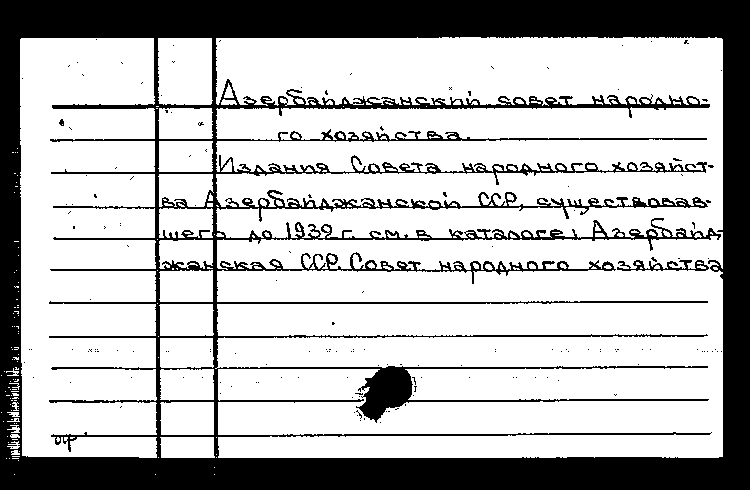 Азербайджанский совет народно-
го хозяйства.
Издания Совета народного хозяйст-
ва Азербайджанской ССР, существовав-
шего до 1932 г. см. в каталоге: Азербайд-
жанская ССР. Совет народного хозяйства